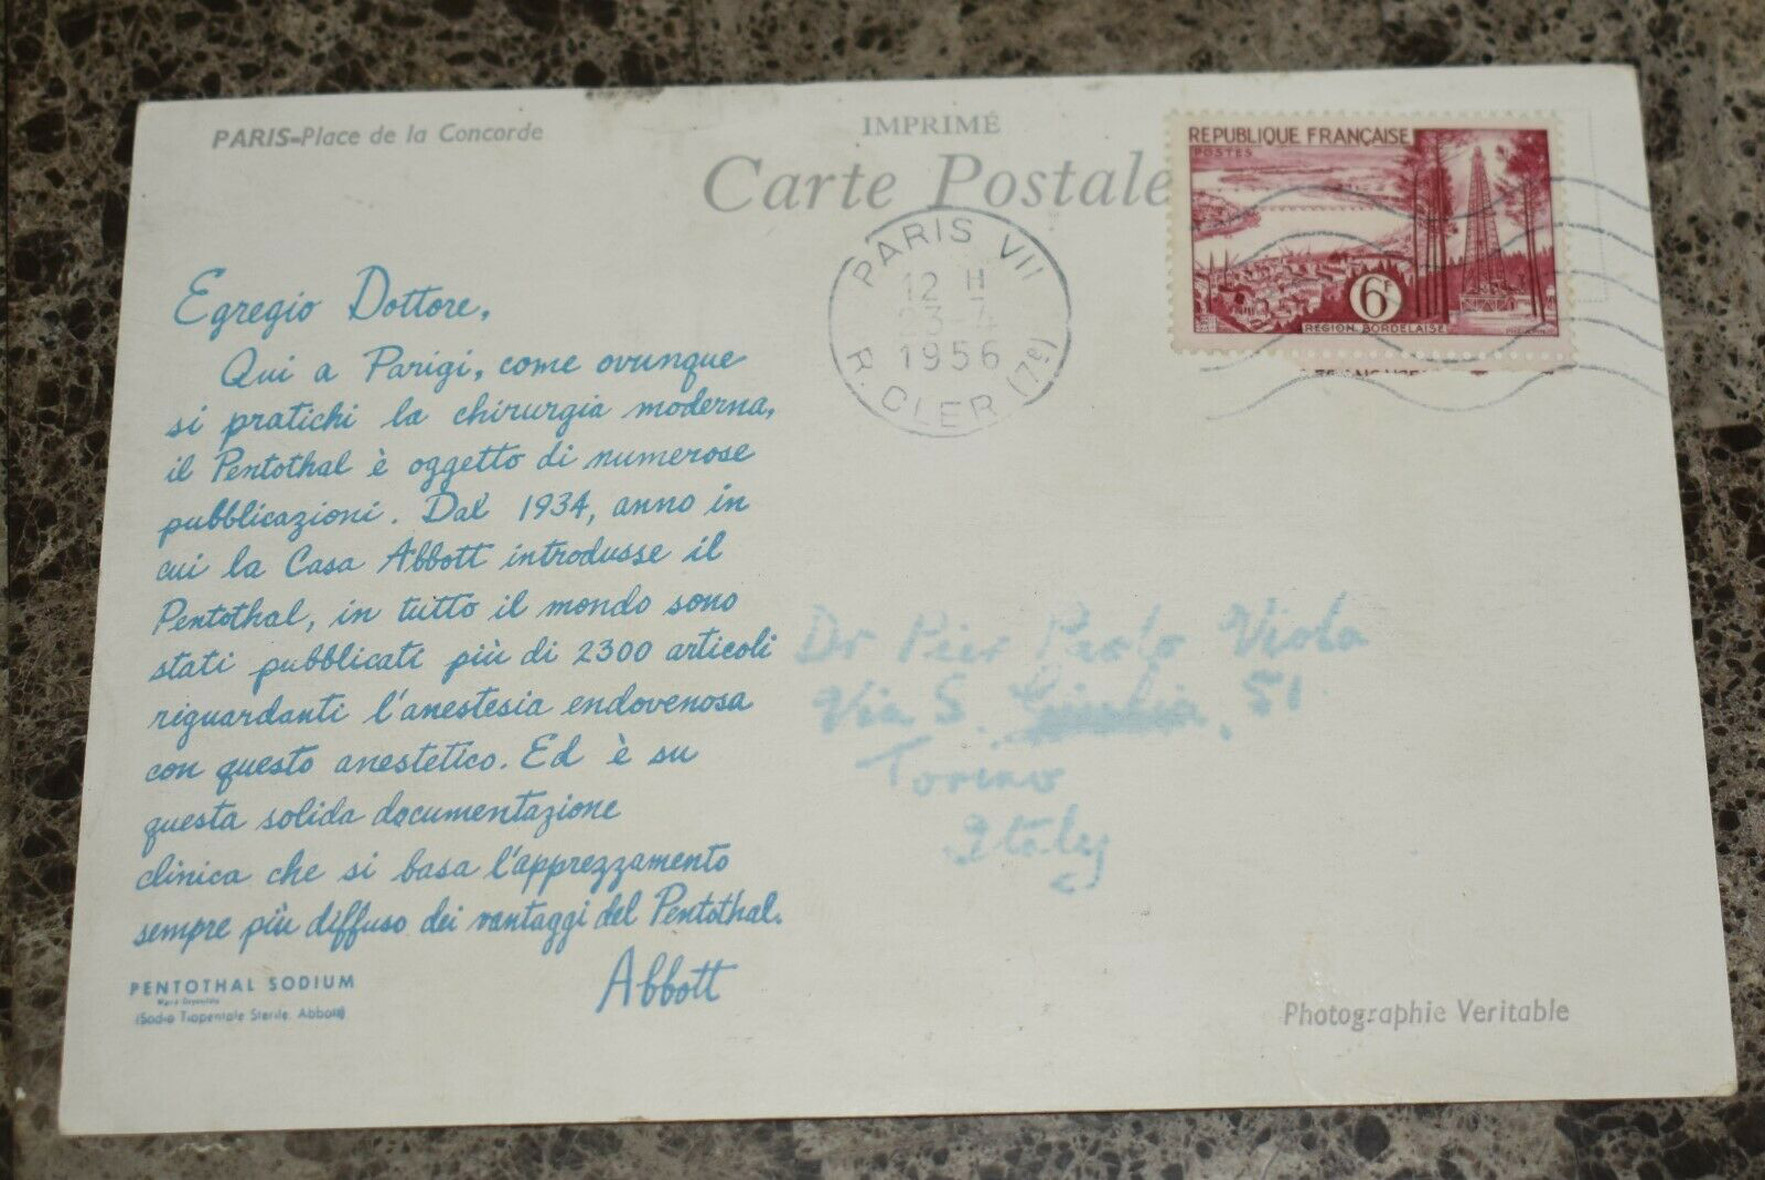 PARIS-Place de la Concorde
IMPRIMÉ
Carte Postale
REPUBLIQUE FRANÇAISE
POSTES
6F
REGION BORDELAISE
PARIS VII
12 H
23-4
1956
R. CLER (7e)
Egregio Dottore,
Qui a Parigi, come ovunque
si pratichi la chirurgia moderna,
il Pentothal è oggetto di numerose
pubblicazioni. Dal 1934, anno in
cui la Casa Abbott introdusse il
Pentothal, in tutto il mondo sono
stati pubblicati più di 2300 articoli
riguardanti l'anestesia endovenosa
con questo anestetico. Ed è su
questa solida documentazione
clinica che si basa l'apprezzamento
sempre più diffuso dei vantaggi del Pentothal.
Abbott
PENTOTHAL SODIUM
(Sodio Tiopentale Sterile, Abbott)
Dr Pier Paolo Viola
Via S. 51
Torino
Italy
Photographie Veritable